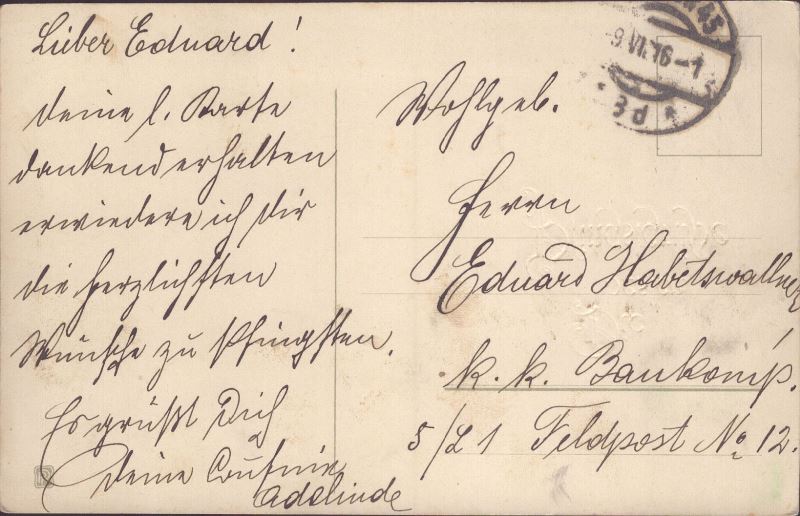 Lieber Eduard!
deine l. Karte
dankend erhalten
erwiedere ich dir
die herzlichsten
Wünsche zu Pfingsten.
Es grüßt Dich
deine Cousine
Adelinde
9.VI.16-1
* 3d *
Wohlgeb.
Herrn
Eduard Habetswallner
k. k. Baukomp.
5/L 1 Feldpost No 12.